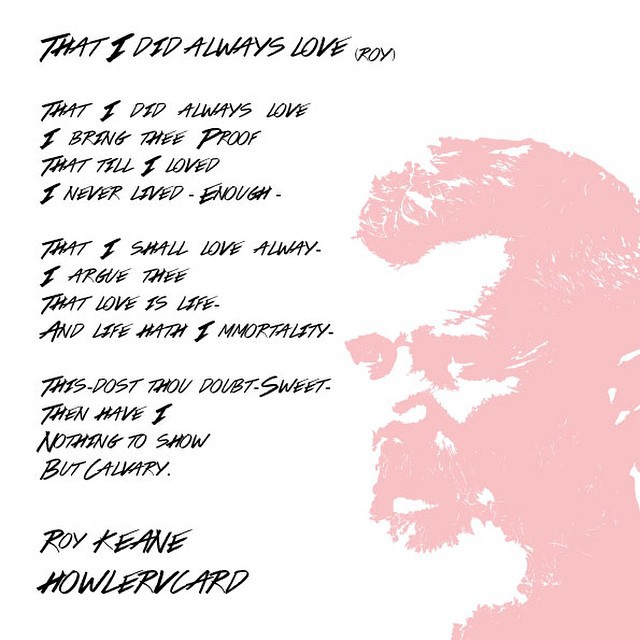 That I did always love (Roy)
That I did always love
I bring thee Proof
That till I loved
I never lived - Enough -
That I shall love alway-
I argue thee
That love is life-
And life hath Immortality-
This-dost thou doubt-Sweet-
Then have I
Nothing to show
But Calvary.
Roy Keane
HOWLERVCARD